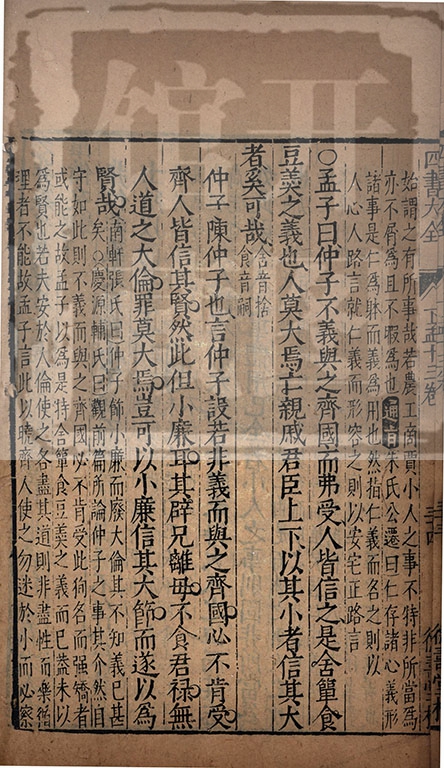 四書大全 下孟十三卷 三十四
始謂之有所事哉若農工商賈小人之事不特非所當為
亦不屑為且不暇為也通旨朱氏公遷曰仁存諸心義形
諸事是仁為躰而義為用也然指仁義而名之則以
人心人路言就仁義而形容之則以安宅正路言
○孟子曰仲子不義與之齊國而弗受人皆信之是舍簞食
豆羮之義也人莫大焉亡親戚君臣上下以其小者信其大
者奚可哉舍音捨食音嗣
仲子陳仲子也言仲子設若非義而與之齊國必不肯受
齊人皆信其賢然此但小廉耳其辟兄離母不食君禄無
人道之大倫罪莫大焉豈可以小廉信其大節而遂以為
賢哉南軒張氏曰仲子飾小廉而廢大倫其不知義已甚
矣○慶源輔氏曰觀前篇所論仲子之事其介然自
守如此則不義而與之齊國必不肯受此徇名而强矯者
或能之故孟子以為是特舍簞食豆羮之義而已葢未以
為賢也若夫安於人倫使之各盡其道則非盡性而樂循
理者不能故孟子言此以曉齊人使之勿迷於小而必察